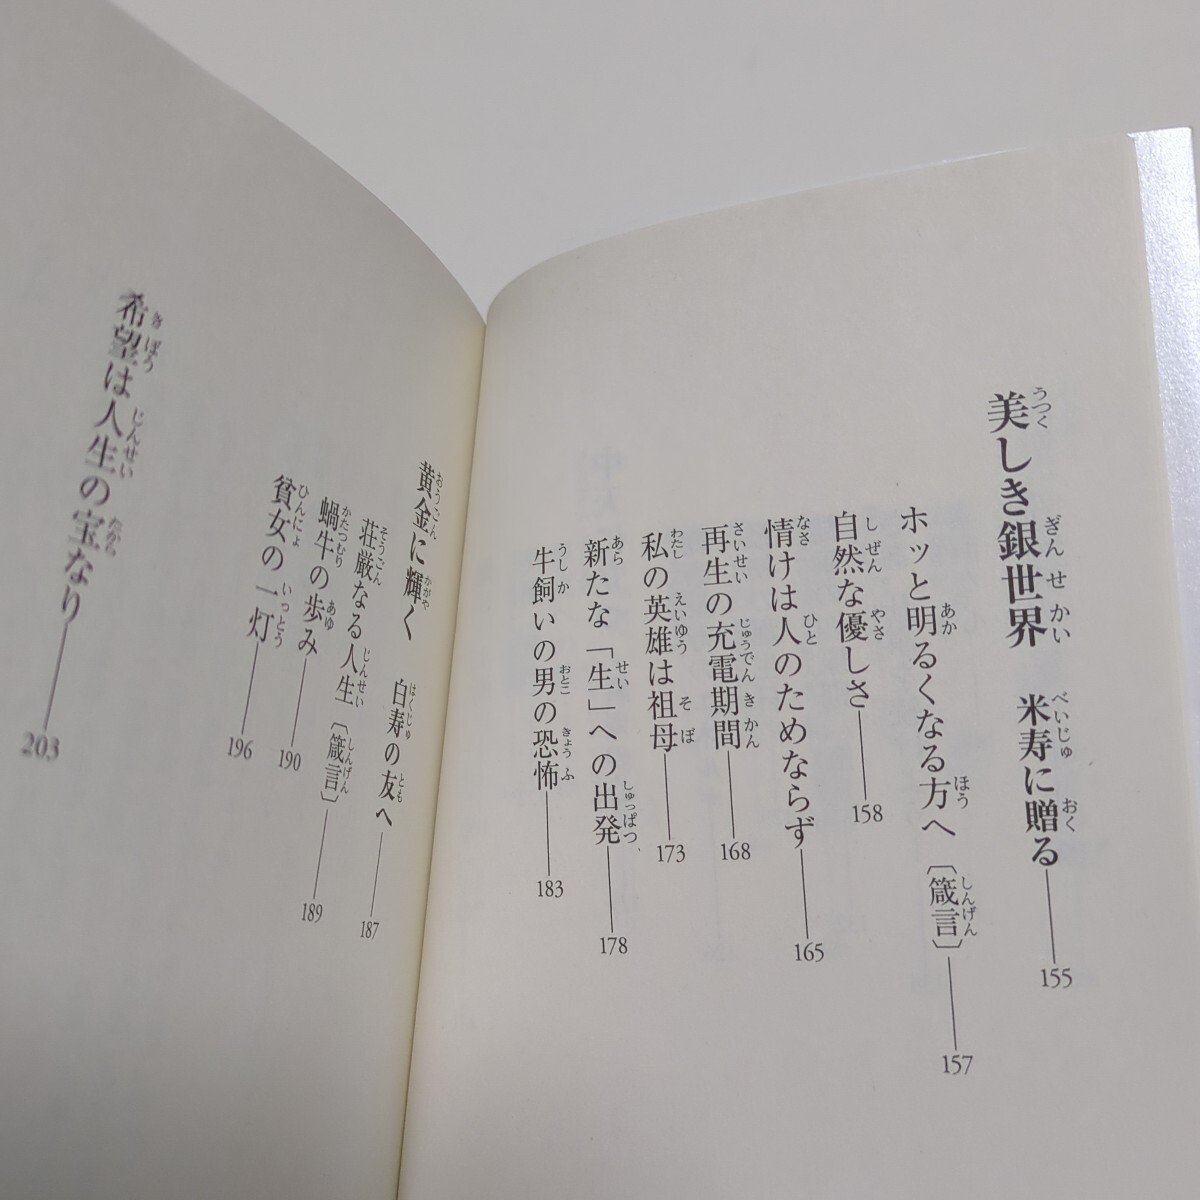 美しき銀世界　米寿に贈る――155
ホッと明るくなる方へ〔箴言〕――157
自然な優しさ――158
情けは人のためならず――165
再生の充電期間――168
私の英雄は祖母――173
新たな「生」への出発――178
牛飼いの男の恐怖――183
黄金に輝く　白寿の友へ――187
荘厳なる人生〔箴言〕――189
蝸牛の歩み――190
貧女の一灯――196
希望は人生の宝なり――203